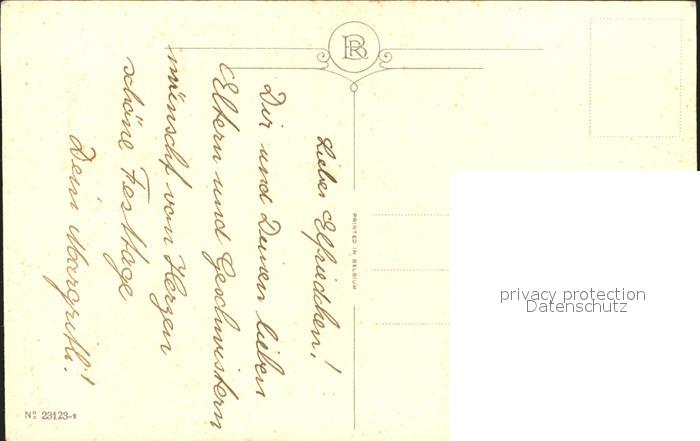 Liebes Elfriedchen!
Dir und Deinen lieben
Eltern und Geschwistern
wünscht von Herzen
schöne Festtage
Dein Margritli!
BR
PRINTED IN BELGIUM
privacy protection
Datenschutz
Nº 23123-2